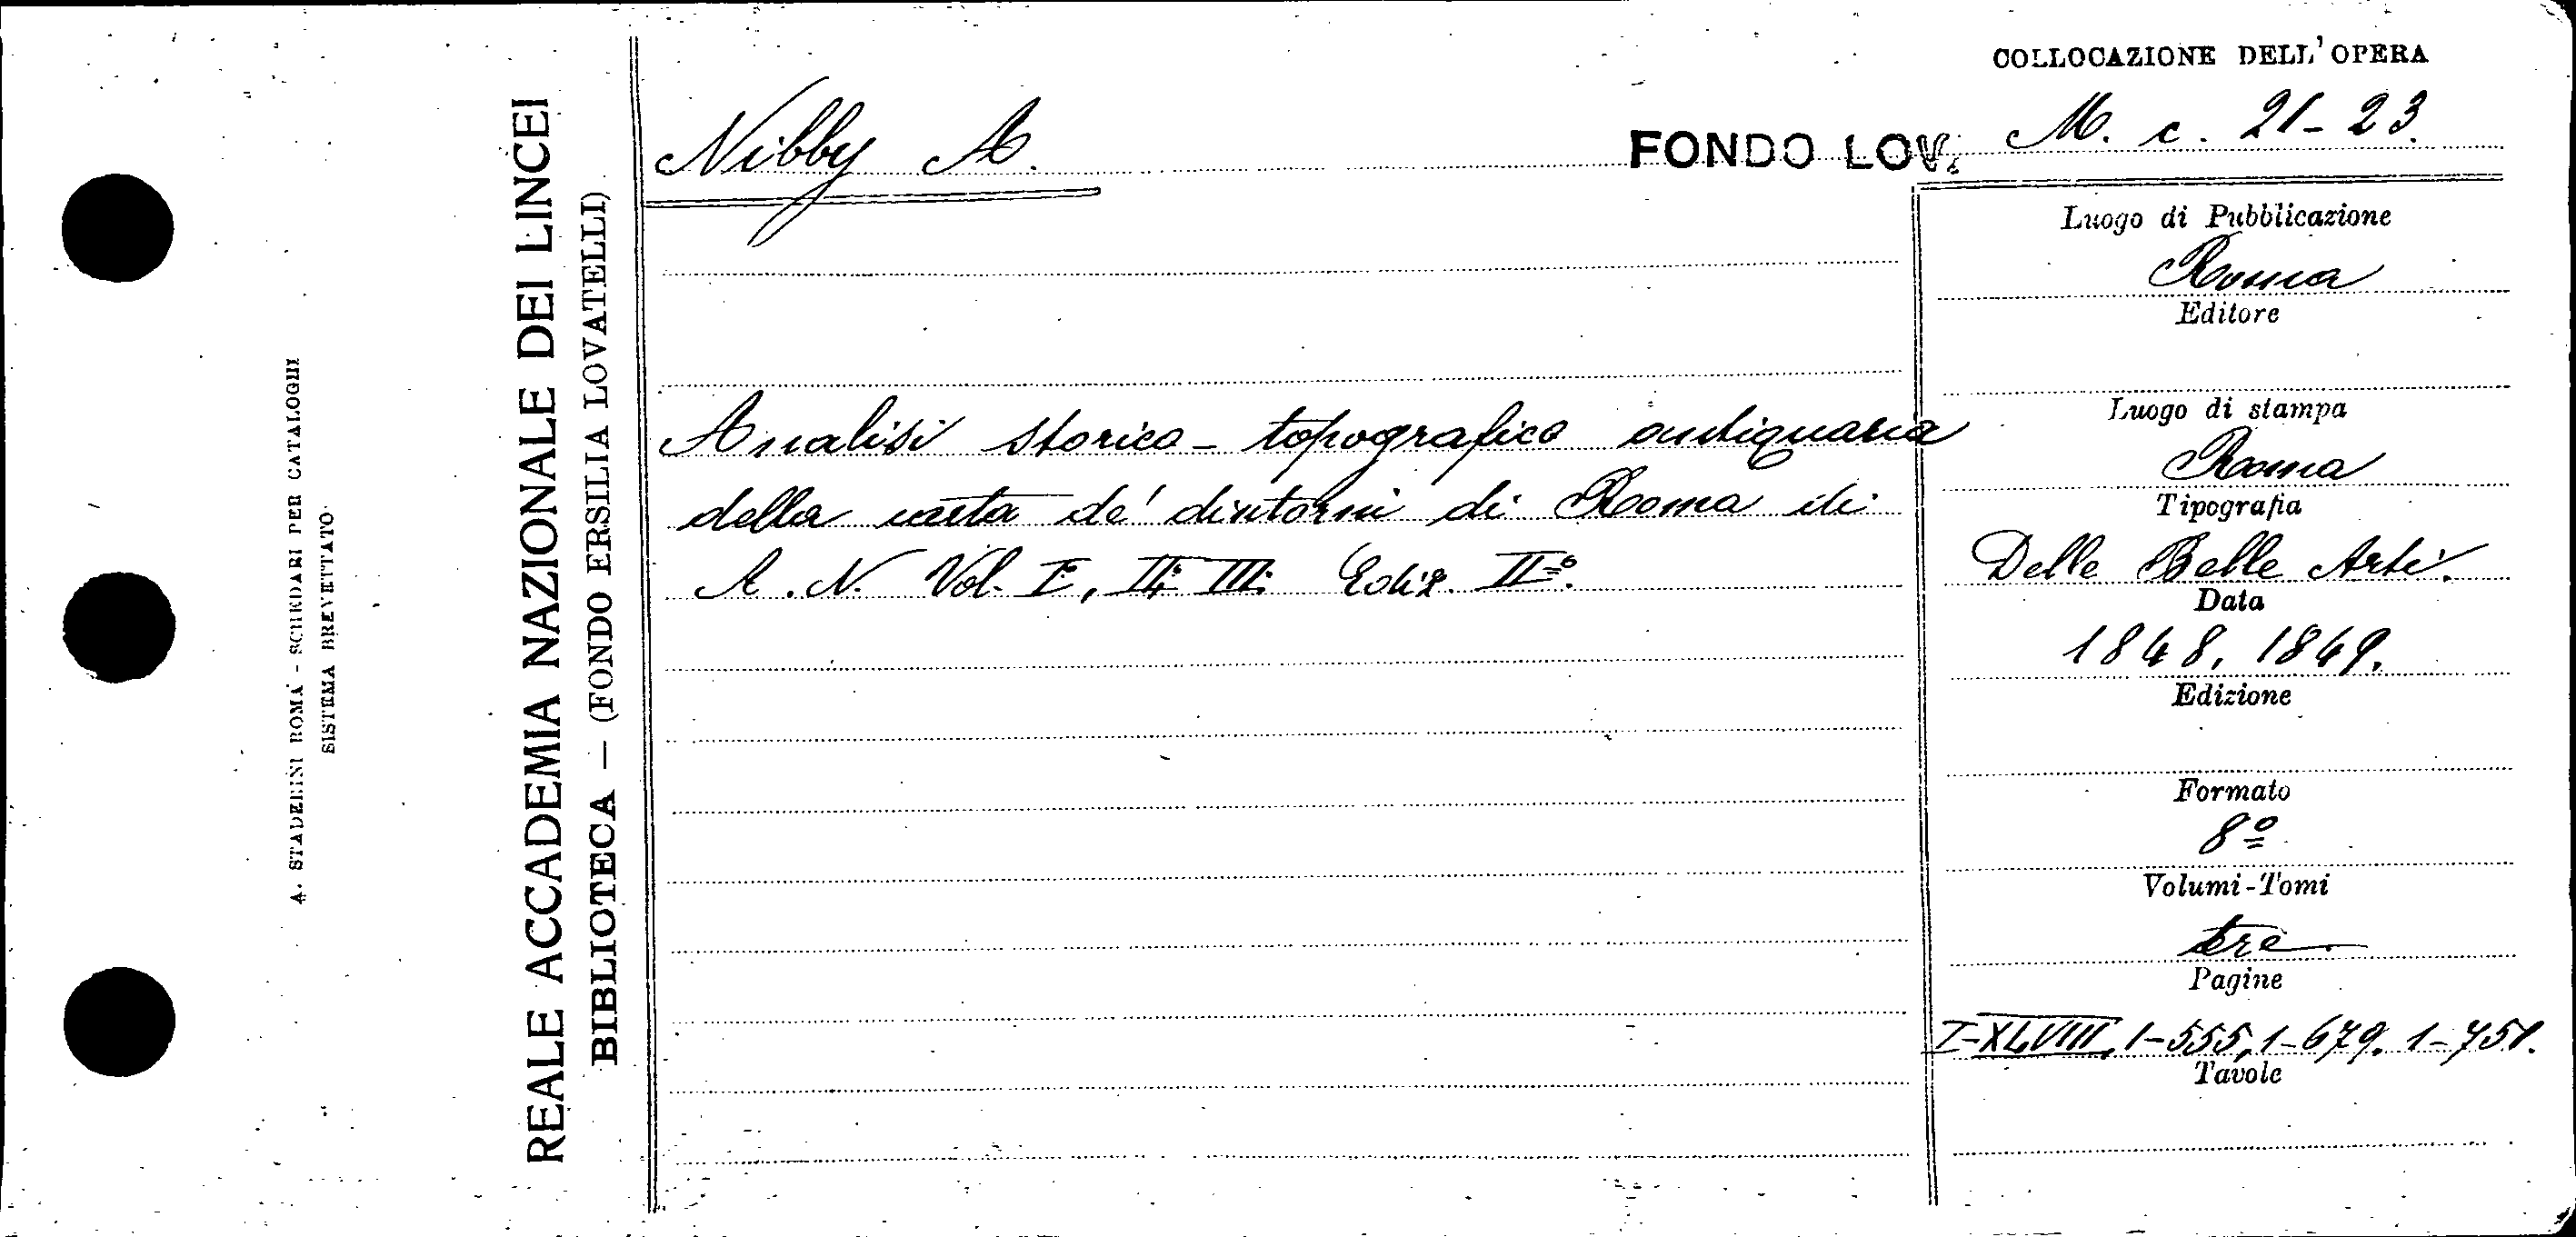 COLLOCAZIONE DELL'OPERA
Nibby A.
FONDO LOV.
M. c. 21-23.
Analisi storico-topografico antiquaria
della carta de' dintorni di Roma di
A. N. Vol. I°, II° III° Ediz. IIª.
Luogo di Pubblicazione
Roma
Editore
Luogo di stampa
Roma
Tipografia
Delle Belle Arti.
Data
1848, 1849.
Edizione
Formato
8º
Volumi-Tomi
tre
Pagine
I-XLVIII, 1-555, 1-679. 1-751.
Tavole
REALE ACCADEMIA NAZIONALE DEI LINCEI
BIBLIOTECA — (FONDO ERSILIA LOVATELLI)
A. STADERINI ROMA - SCHEDARI PER CATALOGHI
SISTEMA BREVETTATO